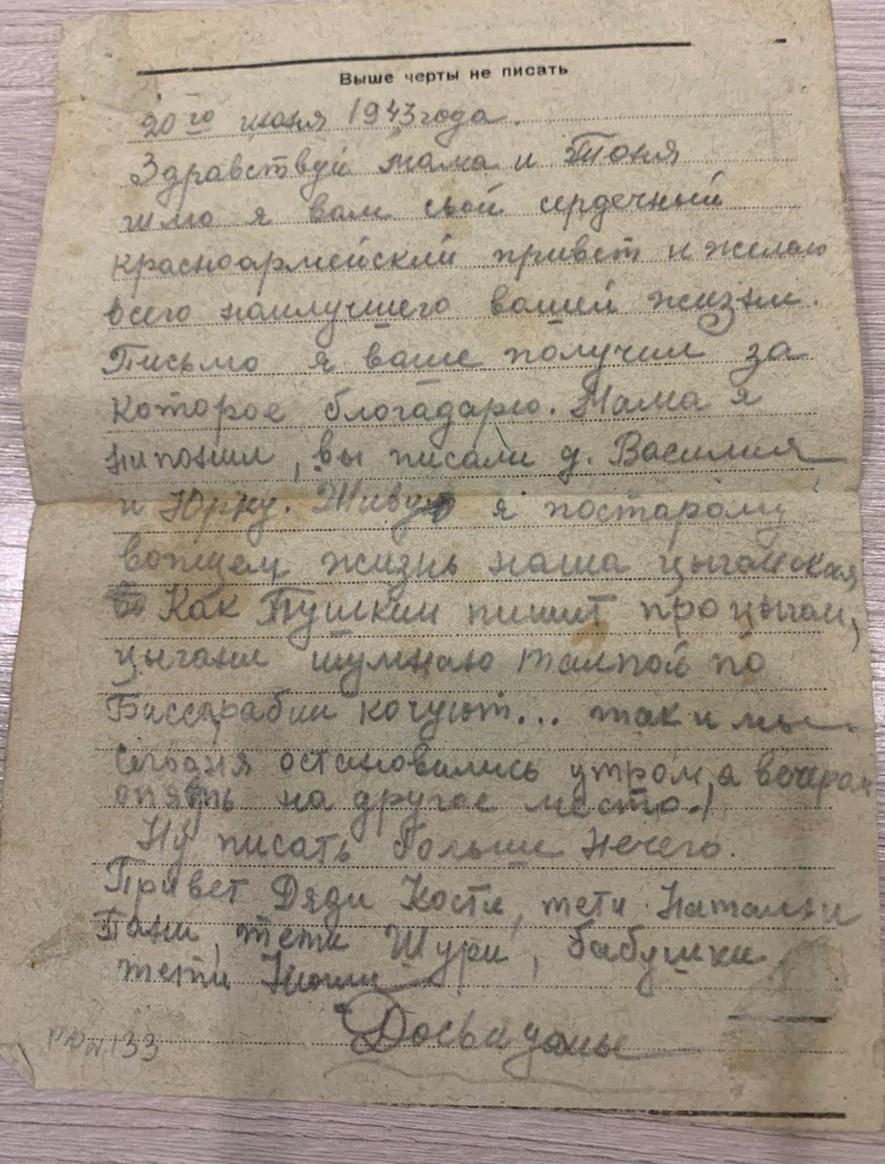 Выше черты не писать
20го июня 1943 года.
Здравствуй мама и Тоня
шлю я вам свой сердечный
красноармейский привет и желаю
всего наилучшего вашей жизни.
Письмо я ваше получил за
которое благадарю. Мама я
нипонил, вы писали д. Василия
и Юрку. Живу я постарому
вопщем жизнь наша цыганская,
Как Пушкин пишит про цыган,
цыгани шумною талпой по
Бисcарабии кочуют... так и мы
сегодня остановились утром, а вечером
опять на другое место.
Ну писать больши нечего.
Привет Дяди Кости, тети Натальи
Пани, тети Шури, бабушки
тети
Досвиданье
133